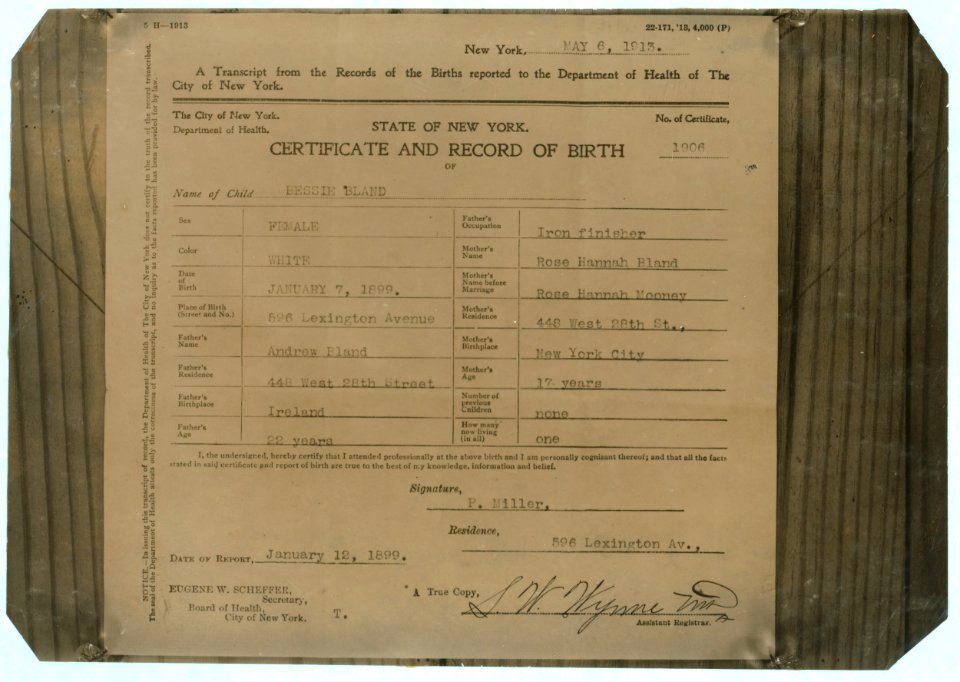 5 H—1913
22-171, '13, 4,000 (P)
New York, MAY 6, 1913.
A Transcript from the Records of the Births reported to the Department of Health of The
City of New York.
The City of New York.
Department of Health.
STATE OF NEW YORK.
No. of Certificate,
CERTIFICATE AND RECORD OF BIRTH
1906
OF
Name of Child BESSIE BLAND
Sex FEMALE
Color WHITE
Date
of
Birth JANUARY 7, 1899.
Place of Birth
(Street and No.) 596 Lexington Avenue
Father's
Name Andrew Bland
Father's
Residence 448 West 28th Street
Father's
Birthplace Ireland
Father's
Age 22 years
Father's
Occupation Iron finisher
Mother's
Name Rose Hannah Bland
Mother's
Name before
Marriage Rose Hannah Mooney
Mother's
Residence 448 West 28th St.,
Mother's
Birthplace New York City
Mother's
Age 17 years
Number of
previous
Children none
How many
now living
(in all) one
I, the undersigned, hereby certify that I attended professionally at the above birth and I am personally cognizant thereof; and that all the facts
stated in said certificate and report of birth are true to the best of my knowledge, information and belief.
Signature,
P. Miller,
Residence,
596 Lexington Av.,
DATE OF REPORT, January 12, 1899.
EUGENE W. SCHEFFER,
Secretary,
Board of Health,
City of New York.
T.
A True Copy, S. W. Wynne
Assistant Registrar.
NOTICE.—In issuing this transcript of record, the Department of Health of The City of New York does not certify to the truth of the record transcribed.
The seal of the Department of Health attests only the correctness of the transcript, and no inquiry as to the facts reported has been provided for by law.